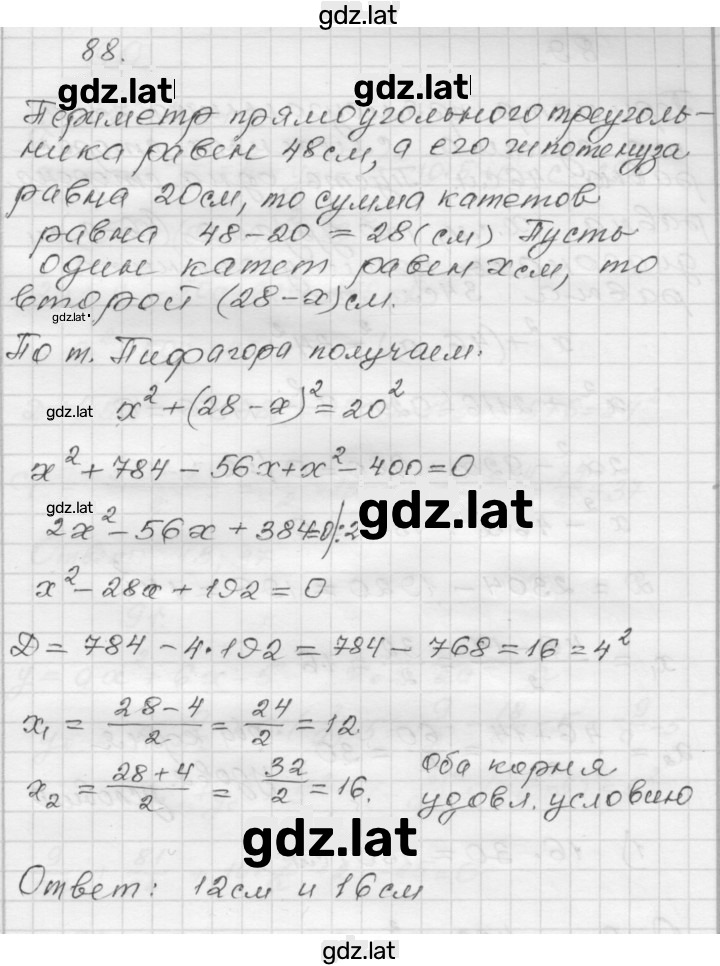 gdz.lat
88.
gdz.lat gdz.lat
Периметр прямоугольного треуголь-
ника равен 48см, а его гипотенуза
равна 20см, то сумма катетов
равна 48-20 = 28 (см) Пусть
один катет равен xсм, то
второй (28-x)см.
gdz.lat
По т. Пифагора получаем:
gdz.lat x² + (28-x)² = 20²
x² + 784 - 56x + x² - 400 = 0
gdz.lat gdz.lat
2x² - 56x + 384=0/:2
x² - 28x + 192 = 0
Д = 784 - 4·192 = 784 - 768 = 16 = 4²
x₁ = (28-4)/2 = 24/2 = 12.
x₂ = (28+4)/2 = 32/2 = 16. Оба корня
удовл. условию
gdz.lat
Ответ: 12см и 16см
gdz.lat